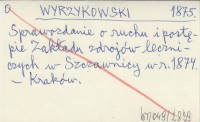 WYRZYKOWSKI 1875.
Sprawozdanie o ruchu i postę-
pie Zakładu zdrojów leczni-
czych w Szczawnicy w r. 1874.
– Kraków.